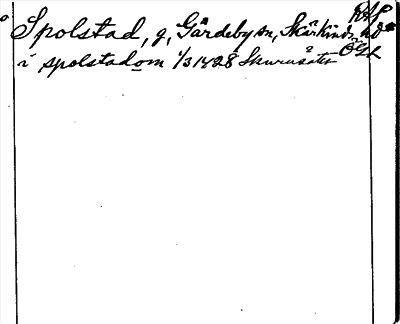 RAp
Spolstad, g, Gårdeby sn, Skärkinds hd
Ögl
i spolstadom 1/3 1428 Skurusäter